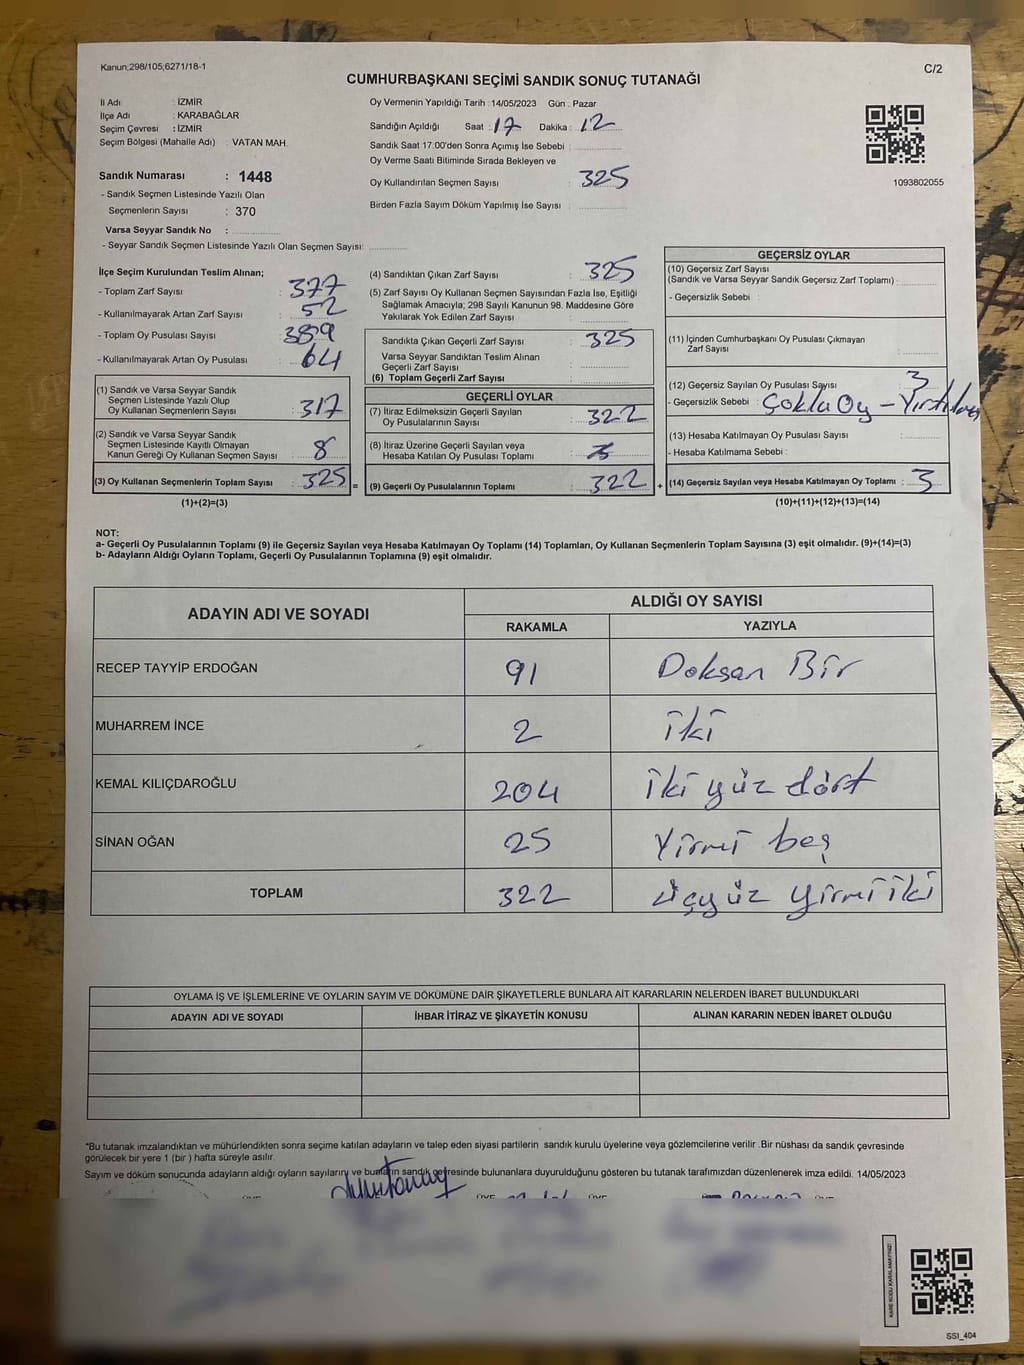 Kanun;298/105;6271/18-1
C/2
CUMHURBAŞKANI SEÇİMİ SANDIK SONUÇ TUTANAĞI
İl Adı : İZMİR
İlçe Adı : KARABAĞLAR
Seçim Çevresi : İZMİR
Seçim Bölgesi (Mahalle Adı) : VATAN MAH.
Sandık Numarası : 1448
- Sandık Seçmen Listesinde Yazılı Olan
Seçmenlerin Sayısı : 370
Varsa Seyyar Sandık No :
- Seyyar Sandık Seçmen Listesinde Yazılı Olan Seçmen Sayısı:
Oy Vermenin Yapıldığı Tarih : 14/05/2023 Gün : Pazar
Sandığın Açıldığı Saat : 17 Dakika : 12
Sandık Saat 17:00'den Sonra Açımış İse Sebebi :
Oy Verme Saati Bitiminde Sırada Bekleyen ve
Oy Kullandırılan Seçmen Sayısı : 325
Birden Fazla Sayım Döküm Yapılmış İse Sayısı :
1093802055
İlçe Seçim Kurulundan Teslim Alınan;
- Toplam Zarf Sayısı : 377
- Kullanılmayarak Artan Zarf Sayısı : 52
- Toplam Oy Pusulası Sayısı : 389
- Kullanılmayarak Artan Oy Pusulası : 64
(1) Sandık ve Varsa Seyyar Sandık
Seçmen Listesinde Yazılı Olup
Oy Kullanan Seçmenlerin Sayısı : 317
(2) Sandık ve Varsa Seyyar Sandık
Seçmen Listesinde Kayıtlı Olmayan
Kanun Gereği Oy Kullanan Seçmen Sayısı : 8
(3) Oy Kullanan Seçmenlerin Toplam Sayısı : 325 =
(1)+(2)=(3)
(4) Sandıktan Çıkan Zarf Sayısı : 325
(5) Zarf Sayısı Oy Kullanan Seçmen Sayısından Fazla İse, Eşitliği
Sağlamak Amacıyla; 298 Sayılı Kanunun 98. Maddesine Göre
Yakılarak Yok Edilen Zarf Sayısı :
Sandıkta Çıkan Geçerli Zarf Sayısı : 325
Varsa Seyyar Sandıktan Teslim Alınan
Geçerli Zarf Sayısı :
(6) Toplam Geçerli Zarf Sayısı :
GEÇERLİ OYLAR
(7) İtiraz Edilmeksizin Geçerli Sayılan
Oy Pusulalarının Sayısı : 322
(8) İtiraz Üzerine Geçerli Sayılan veya
Hesaba Katılan Oy Pusulası Toplamı :
(9) Geçerli Oy Pusulalarının Toplamı : 322 +
GEÇERSİZ OYLAR
(10) Geçersiz Zarf Sayısı
(Sandık ve Varsa Seyyar Sandık Geçersiz Zarf Toplamı) :
- Geçersizlik Sebebi :
(11) İçinden Cumhurbaşkanı Oy Pusulası Çıkmayan
Zarf Sayısı :
(12) Geçersiz Sayılan Oy Pusulası Sayısı 3
- Geçersizlik Sebebi : Çoklu Oy -
(13) Hesaba Katılmayan Oy Pusulası Sayısı :
- Hesaba Katılmama Sebebi :
(14) Geçersiz Sayılan veya Hesaba Katılmayan Oy Toplamı : 3
(10)+(11)+(12)+(13)=(14)
NOT:
a- Geçerli Oy Pusulalarının Toplamı (9) ile Geçersiz Sayılan veya Hesaba Katılmayan Oy Toplamı (14) Toplamları, Oy Kullanan Seçmenlerin Toplam Sayısına (3) eşit olmalıdır. (9)+(14)=(3)
b- Adayların Aldığı Oyların Toplamı, Geçerli Oy Pusulalarının Toplamına (9) eşit olmalıdır.
ADAYIN ADI VE SOYADI
ALDIĞI OY SAYISI
RAKAMLA YAZIYLA
RECEP TAYYİP ERDOĞAN 91 Doksan Bir
MUHARREM İNCE 2 iki
KEMAL KILIÇDAROĞLU 204 iki yüz dört
SİNAN OĞAN 25 Yirmi beş
TOPLAM 322 üçyüz yirmi iki
OYLAMA İŞ VE İŞLEMLERİNE VE OYLARIN SAYIM VE DÖKÜMÜNE DAİR ŞİKAYETLERLE BUNLARA AİT KARARLARIN NELERDEN İBARET BULUNDUKLARI
ADAYIN ADI VE SOYADI İHBAR İTİRAZ VE ŞİKAYETİN KONUSU ALINAN KARARIN NEDEN İBARET OLDUĞU
*Bu tutanak imzalandıktan ve mühürlendikten sonra seçime katılan adayların ve talep eden siyasi partilerin sandık kurulu üyelerine veya gözlemcilerine verilir .Bir nüshası da sandık çevresinde
görülecek bir yere 1 (bir ) hafta süreyle asılır.
Sayım ve döküm sonucunda adayların aldığı oyların sayılarını ve bunların sandık çevresinde bulunanlara duyurulduğunu gösteren bu tutanak tarafımızdan düzenlenerek imza edildi. 14/05/2023
KARE KODU KARALAMAYINIZ!
SSI_404